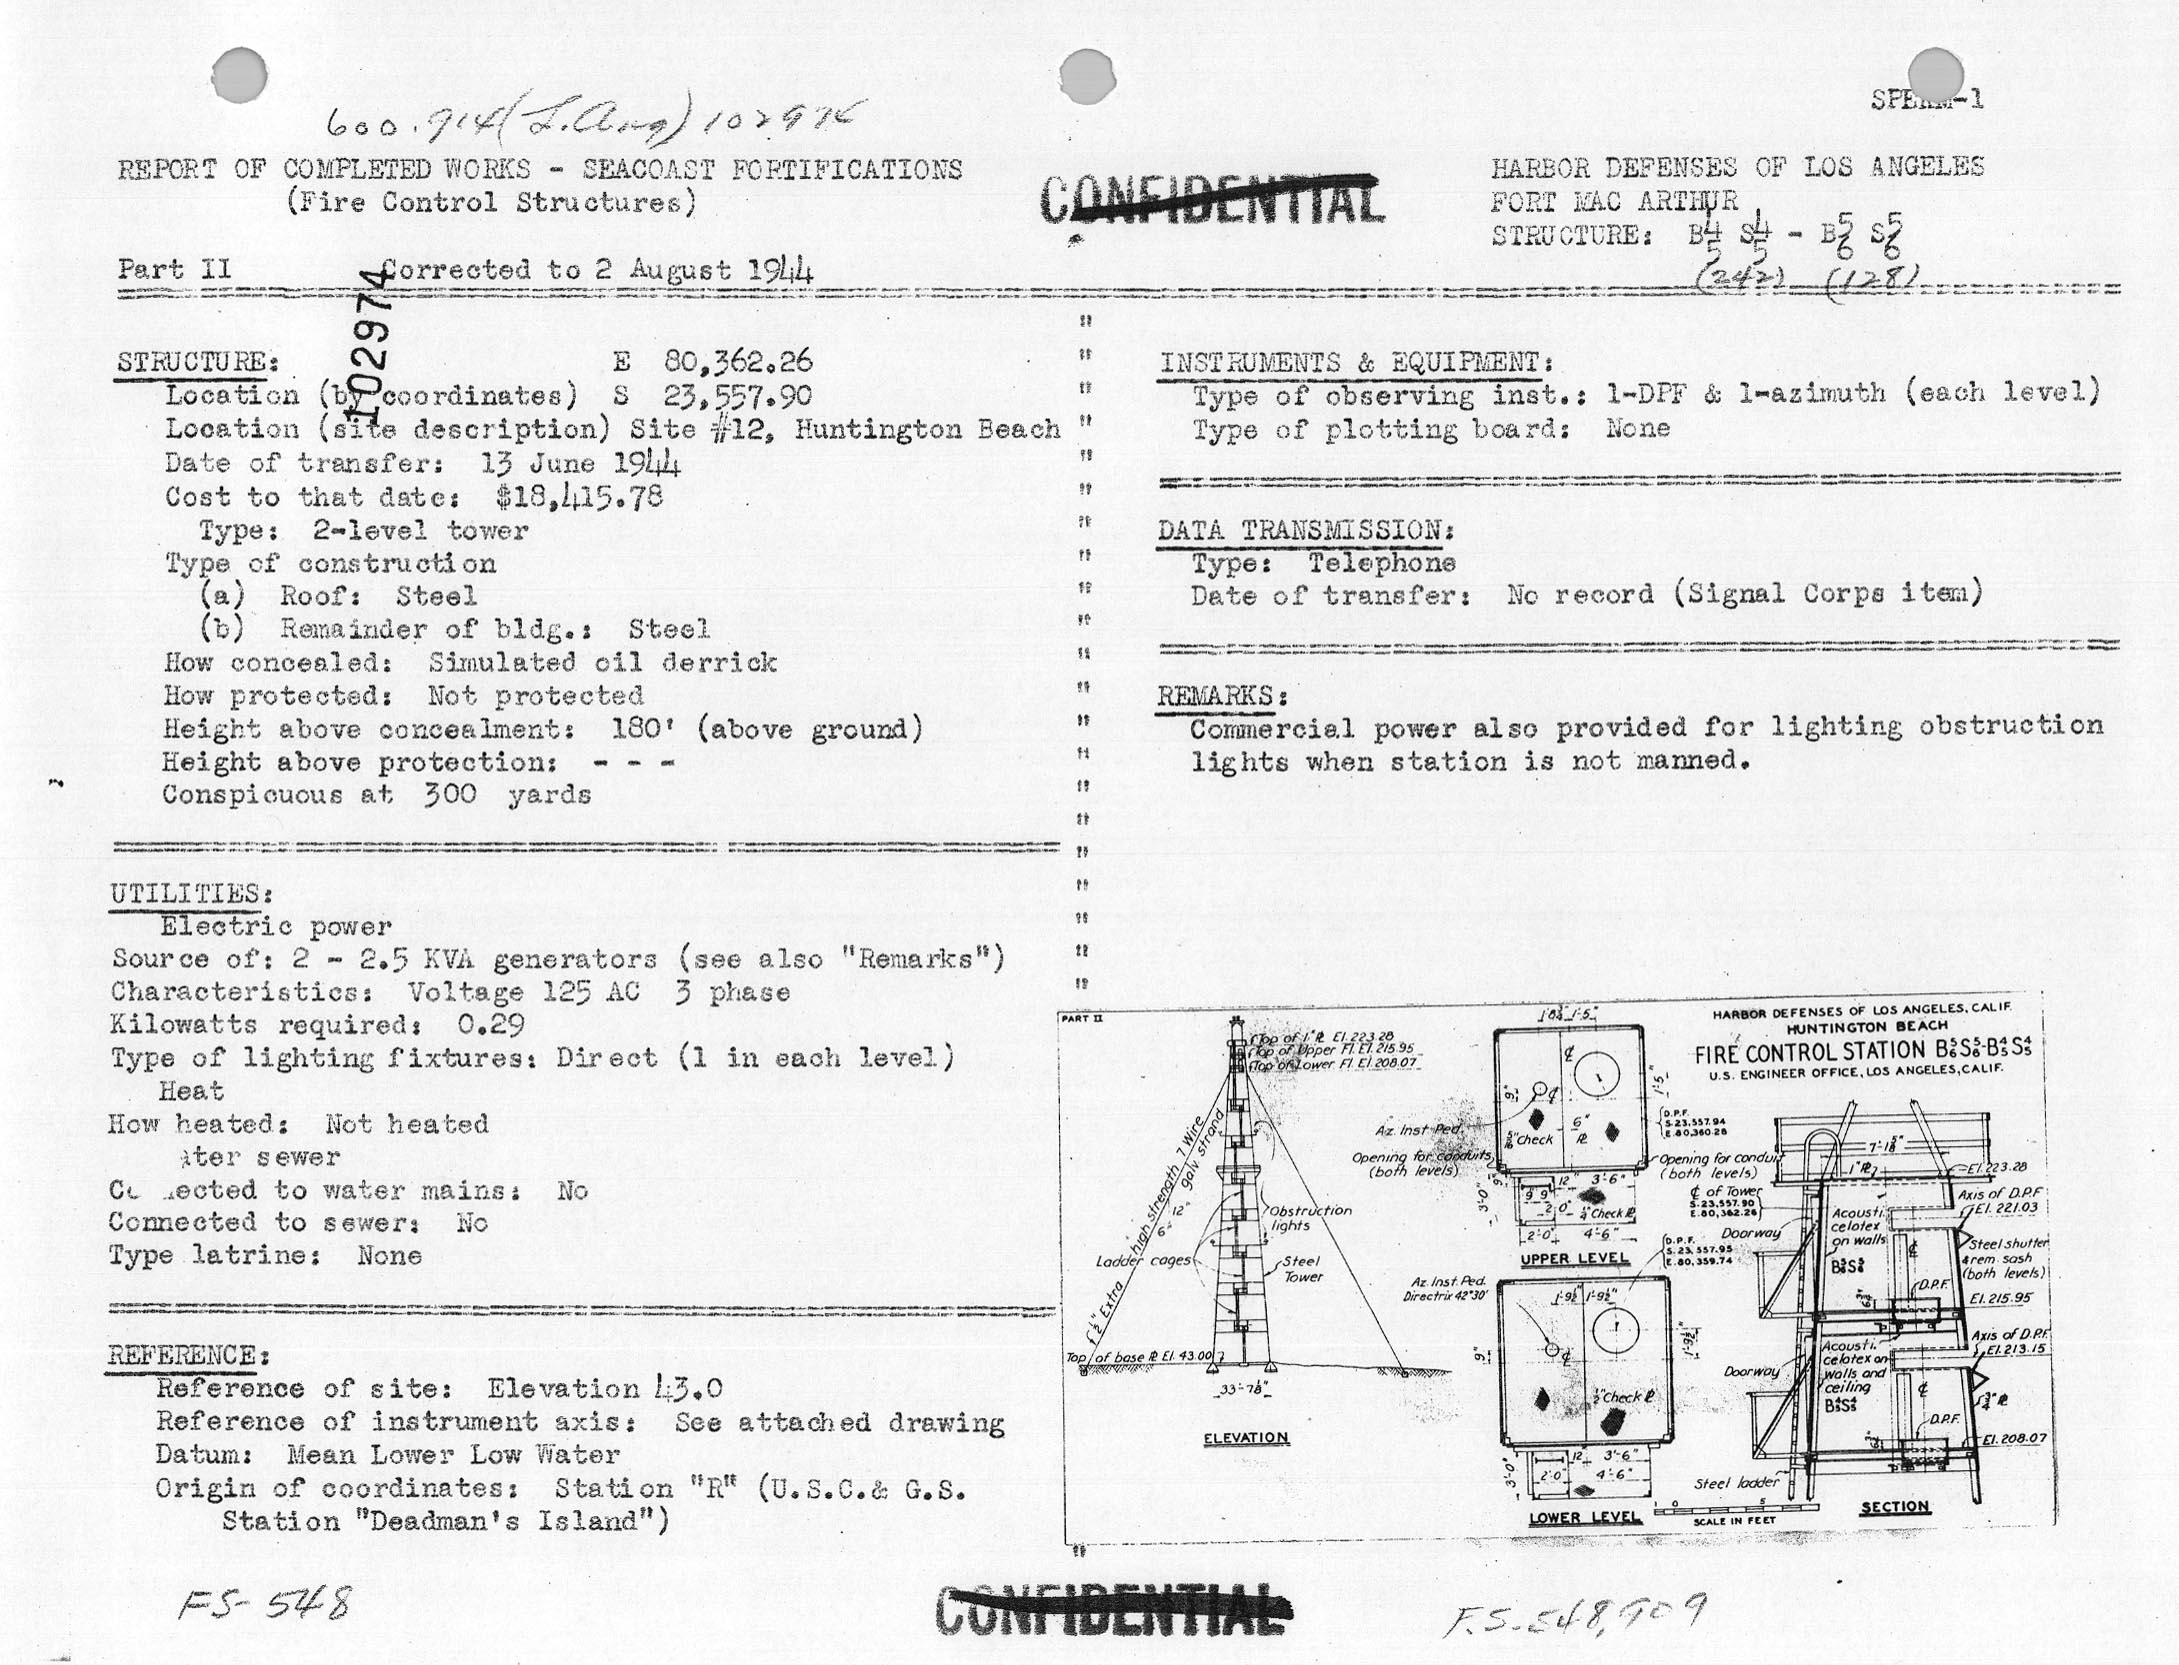 600.914 (L. Ang) 102974
SPEKM-1
REPORT OF COMPLETED WORKS - SEACOAST FORTIFICATIONS
(Fire Control Structures)
CONFIDENTIAL
HARBOR DEFENSES OF LOS ANGELES
FORT MAC ARTHUR
STRUCTURE: B4/5 S4/5 - B5/6 S5/6
(242) (128)
Part II Corrected to 2 August 1944
102974
STRUCTURE: E 80,362.26
Location (by coordinates) S 23,557.90
Location (site description) Site #12, Huntington Beach
Date of transfer: 13 June 1944
Cost to that date: $18,415.78
Type: 2-level tower
Type of construction
(a) Roof: Steel
(b) Remainder of bldg.: Steel
How concealed: Simulated oil derrick
How protected: Not protected
Height above concealment: 180' (above ground)
Height above protection: - - -
Conspicuous at 300 yards
UTILITIES:
Electric power
Source of: 2 - 2.5 KVA generators (see also "Remarks")
Characteristics: Voltage 125 AC 3 phase
Kilowatts required: 0.29
Type of lighting fixtures: Direct (1 in each level)
Heat
How heated: Not heated
ater sewer
Co ected to water mains: No
Connected to sewer: No
Type latrine: None
REFERENCE:
Reference of site: Elevation 43.0
Reference of instrument axis: See attached drawing
Datum: Mean Lower Low Water
Origin of coordinates: Station "R" (U.S.C.& G.S.
Station "Deadman's Island")
INSTRUMENTS & EQUIPMENT:
Type of observing inst.: 1-DPF & 1-azimuth (each level)
Type of plotting board: None
DATA TRANSMISSION:
Type: Telephone
Date of transfer: No record (Signal Corps item)
REMARKS:
Commercial power also provided for lighting obstruction
lights when station is not manned.
PART II
HARBOR DEFENSES OF LOS ANGELES, CALIF.
HUNTINGTON BEACH
FIRE CONTROL STATION B5/6S5/6-B4/5S4/5
U.S. ENGINEER OFFICE, LOS ANGELES, CALIF.
Top of 1" PL El. 223.28
Top of Upper Fl. El. 215.95
Top of Lower Fl. El. 208.07
1/2" Extra high strength 7 Wire
galv strand
12"
6"
Obstruction
lights
Ladder cages
Steel
Tower
Top of base PL El. 43.00
33'-7 1/8"
ELEVATION
1'-5"
9"
1'-5"
Az. Inst. Ped.
5/16" Check
6" PL
Opening for conduits
(both levels)
Opening for conduit
(both levels)
D.P.F.
S.23,557.94
E.80,360.28
9"
9" 9" 12" 3'-6"
3'-0"
2'0" 1/4" Check PL
2'-0" 4'-6"
UPPER LEVEL
℄ of Tower
S.23,557.90
E.80,362.26
Doorway
D.P.F.
S.23,557.95
E.80,359.74
Az. Inst. Ped.
Directrix 42°30'
1'-9½" 1'-9½"
9"
1'-9½"
Check PL
12" 3'-6"
3'-0"
2'-0" 4'-6"
LOWER LEVEL
1 0 5
SCALE IN FEET
1" PL
El. 223.28
Axis of D.P.F.
El. 221.03
Acousti.
celotex
on walls
B5/6S5/6
Steel shutter
& rem. sash
(both levels)
D.P.F.
El. 215.95
Axis of D.P.F.
El. 213.15
Acousti.
celotex on
walls and
ceiling
B4/5S4/5
Doorway
3/4" PL
D.P.F.
El. 208.07
Steel ladder
SECTION
FS-548
CONFIDENTIAL
F.S.-548,909